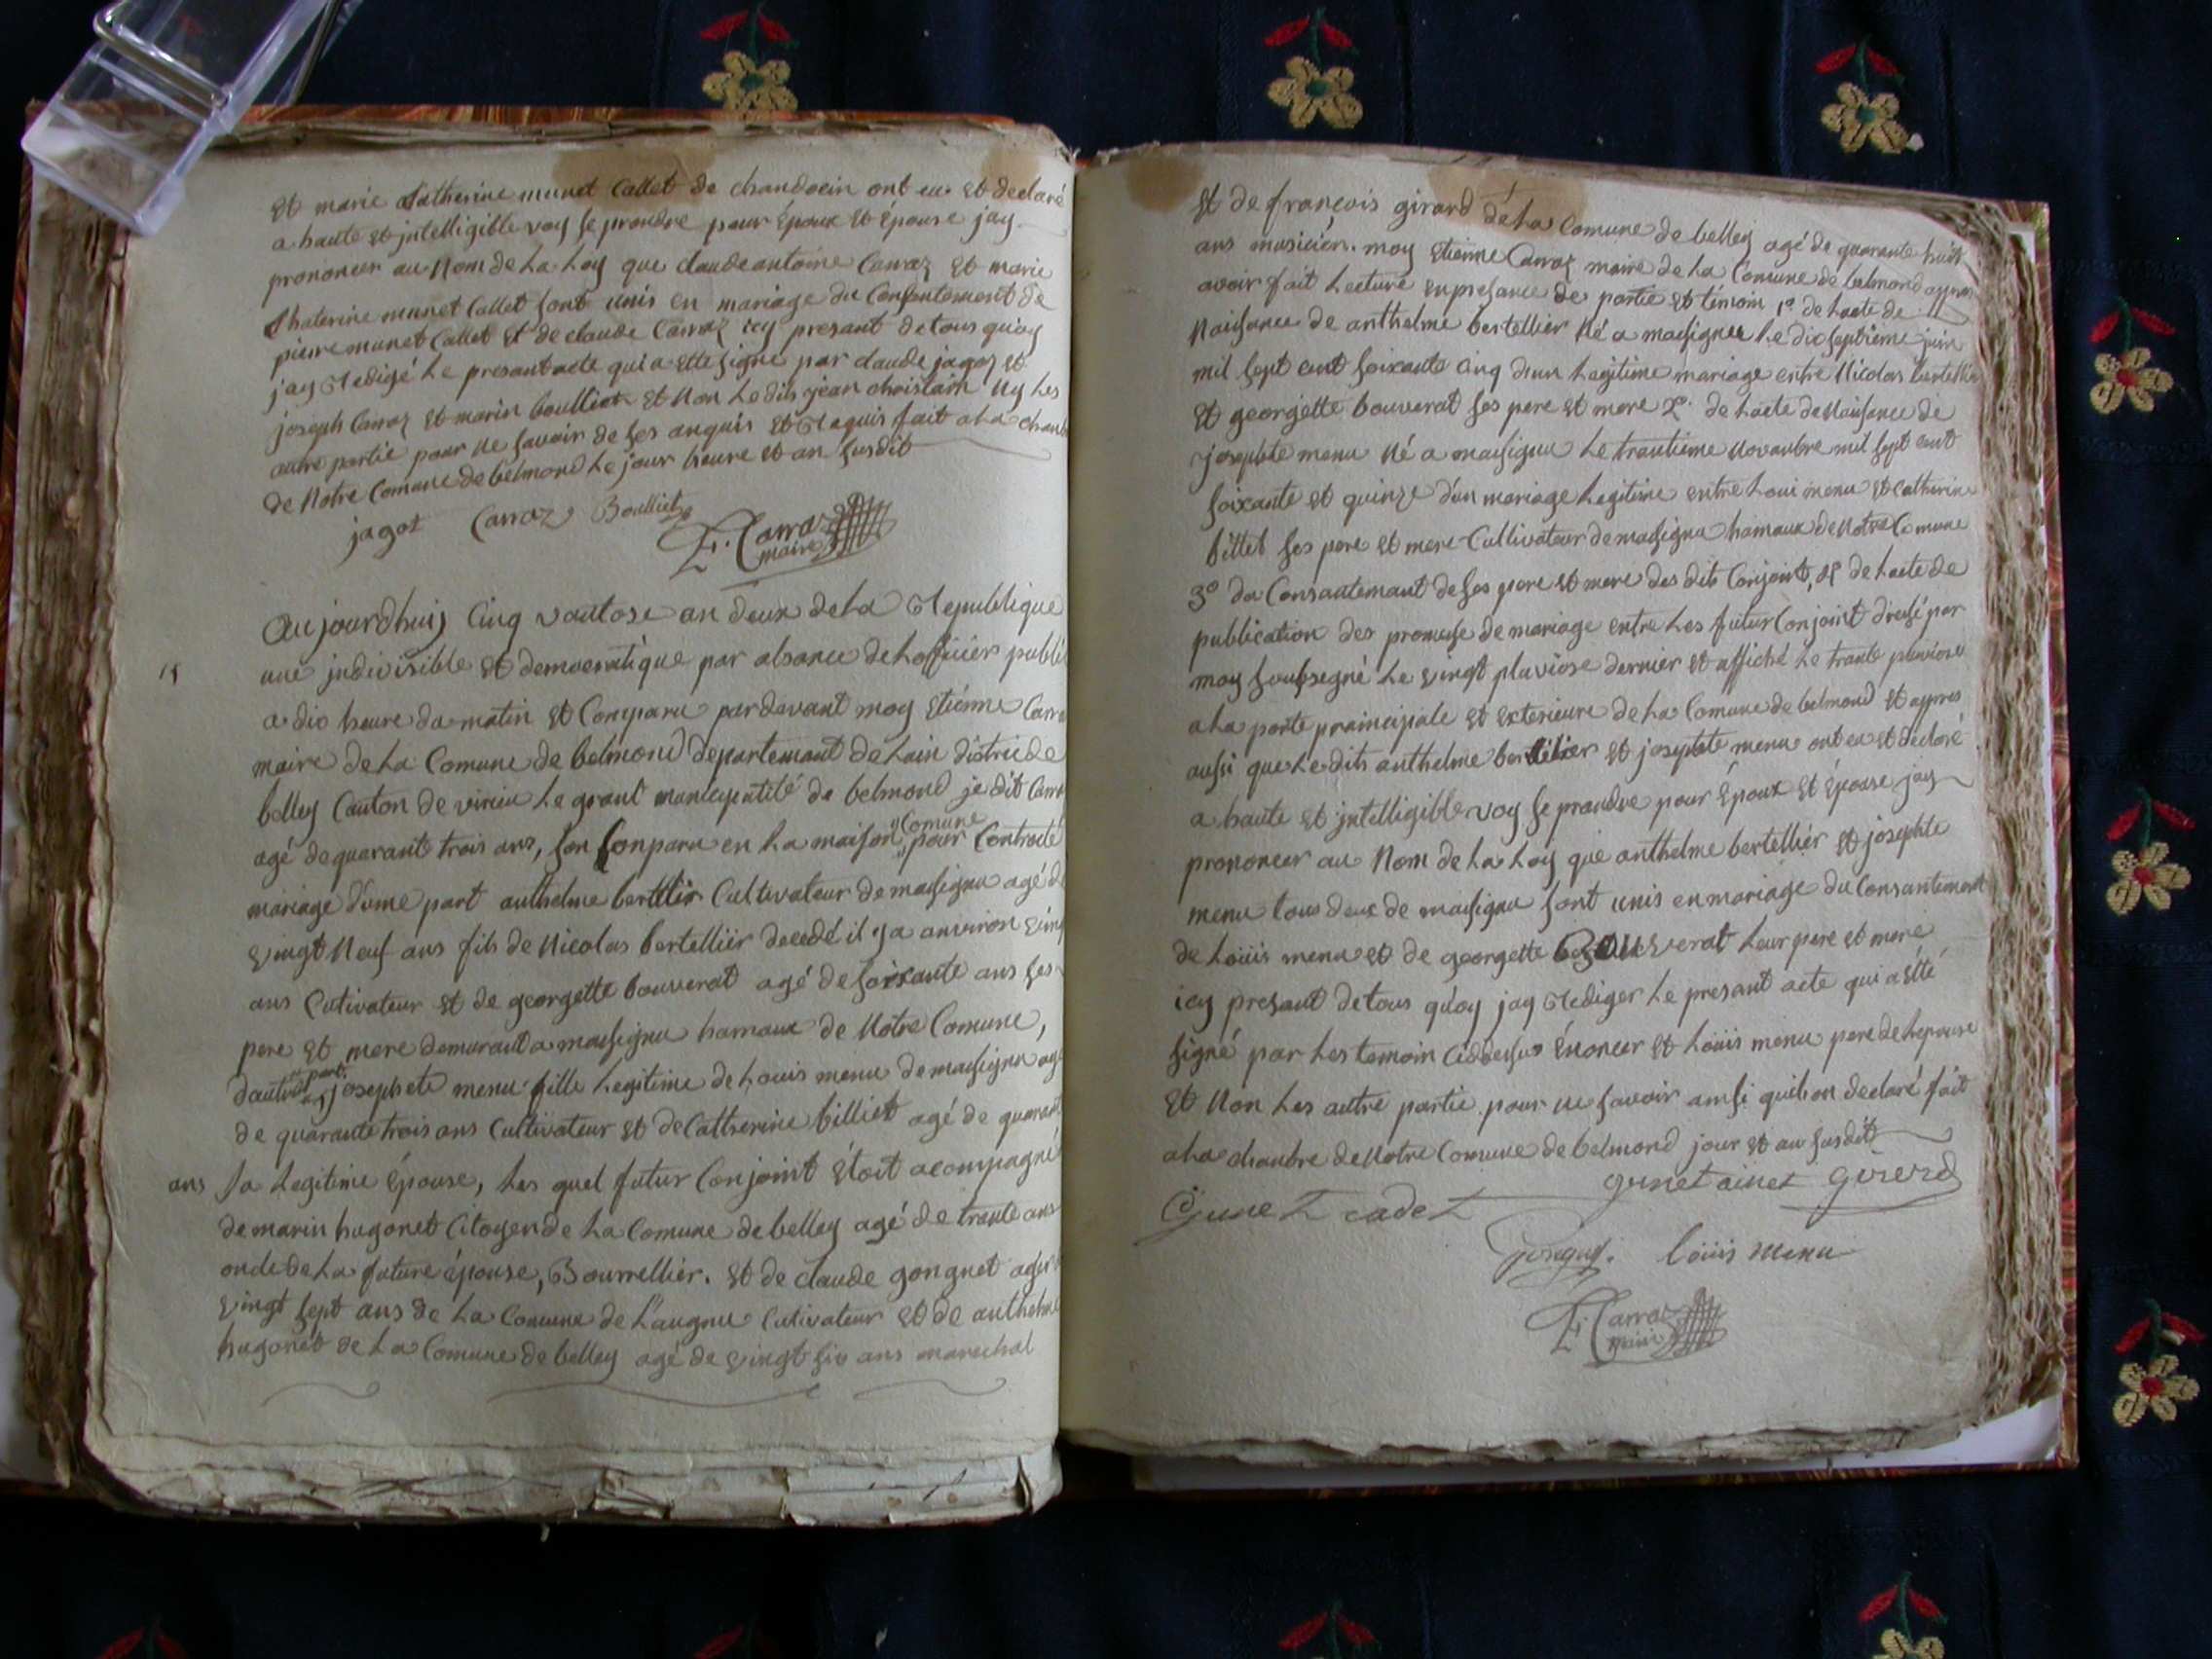 Et marie Catherine munet Callet de chandocin ont eu Et declaré
a haute Et jntelligible voy se prandre pour Époux Et Épouse jay
prononcer au Nom de La Loy que claude antoine Carraz Et marie
Chaterine munet Callet sont unis en mariage du Consentement de
pierre munet Callet Et de claude Carraz icy presant de tous quoy
jay Redigé Le presant acte qui a Ette signé par claude jagoz Et
joseph Carraz Et marin boulliet Et Non Le dits jean christain Ny Les
autre partie pour Ne savoir de Ses anquis Et Requis fait a La chanb
de Notre Comune de belmond Le jour heure Et an susdit
jagot Carraz Boulliet
E. Carraz
maire
Aujourdhuij Cinq vantose an deux de La Republique
15
une jndivisible Et democratique par absance de Loficiér public
a dix heure du matin Et Comparu par devant moy Etiénne Carra
maire de La Comune de belmond departemant de Lain districde
belley Canton de virieu Le grant municipalité de belmond je dit Carra
agé de quarante trois ans, son Conparu en La maison Comune pour Contracté
mariage d'une part anthelme bertellier Cultivateur de massignu agé de
vingt Neuf ans fils de Nicolas bertelliér decedé il y a anviron Cinq
ans Cutivateur Et de georgette bouverat agé de soixante ans ses
pere Et mere demurant a massignu hamaux de Notre Comune,
dautre part, josephete menu fille Legitime de Louis menu de massignu agé
de quarante trois ans Cultivateur Et de Catherine billiet agé de quarant
ans sa Legitime Épouse, Les quel futur Conjoint Étoit acompagné
de marin hugonet Citoyen de La Comune de belley agé de trante ans
oncle de La future épouse, Bourrelliér. Et de claude gongnet agé
vingt sept ans de La Comune de Laugnu Cutivateur Et de anthelme
hugonet de La Comune de belley agé de vingt six ans marechal
Et de françois girard de La Comune de belley agé de quarante huit
ans musicién. moy Etienne Carraz maire de La Comune de belmond appres
avoir fait Lecture en presance de partie Et témoin 1º de Lacte de
Naissance de anthelme bertellier Né a massignu Le dix septiéme juin
mil sept cent soixante cinq d'un Legitime mariage entre Nicolas bertellier
Et georgette bouverat ses pere Et mere 2º. de Lacte de Naissance de
josephte menu Né a massignu Le trantieme Novanbre mil sept cent
soixante Et quinze d'un mariage Legitime entre Loui menu Et Catherine
billiet ses pere Et mere Cultivateur de massignu hamaux de Notre Comune
3º du Consantemant de ses pere Et mere des dits Conjoint, 4º de Lacte de
publication des promesse de mariage entre Les futur Conjoint dressé par
moy soussegné Le vingt pluviose dernier Et affiché Le trante pluviose
a La porte prancipiale Et Exterieure de La Comune de belmond Et appres
aussi que Le dits anthelme bertellier Et josephte menu ont eu Et declaré
a haute Et jntelligible voy se prandre pour Époux Et Épouse jay
prononcer au Nom de La Loy que anthelme bertelliér Et josephte
menu tous deux de massignu sont unis en mariage du Consantemant
de Loüis menu Et de georgette Bouverat Leur pere Et mere
icy presant de tous quoy jay Rediger Le presant acte qui a Été
signé par Les temoin Cidessus Enoncer Et Loüis menu pere de Lepouse
Et Non Les autre partie pour Ne savoir ainsi quil on declaré fait
a La chanbre de Notre Comune de belmond jour Et an susdit
cadet Girerd
Loüis menu
E. Carraz
maire